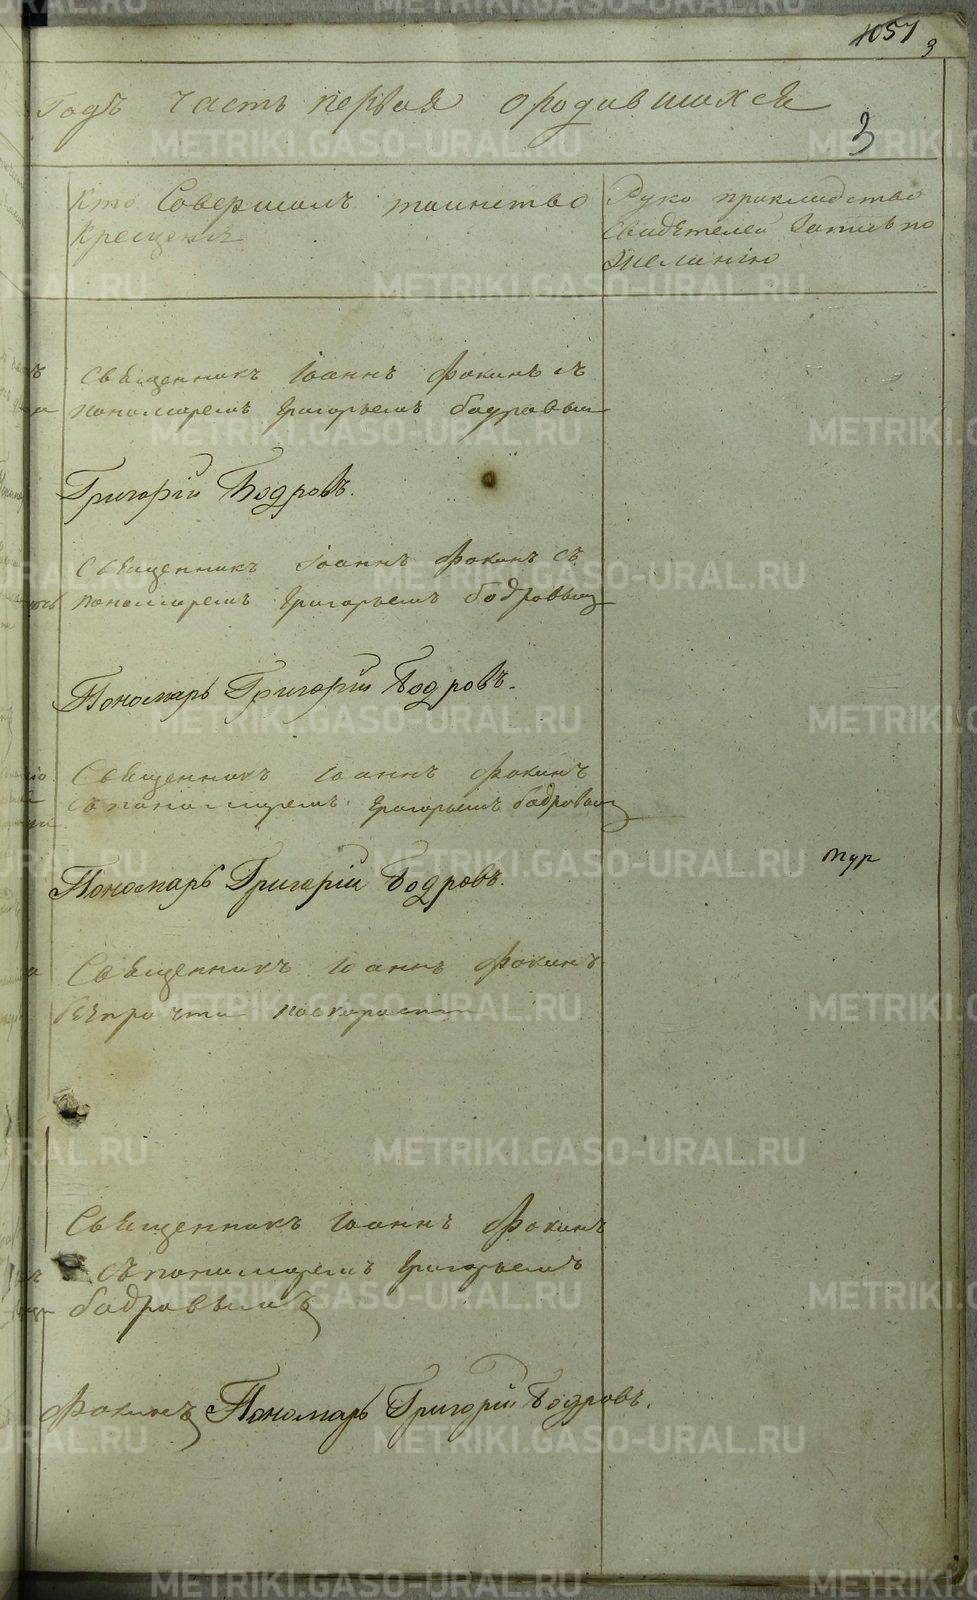 1051
3
Годъ часть первая ородившихся
3
Кто Совершалъ таинство
Крещенія
Руко прикладство
Свидѣтелей записъ по
Желанію
Священникъ Іоаннъ Фокинъ съ
пономаремъ Григорьемъ бодровым
Григорій Бодровъ.
Священникъ Іоаннъ Фокинъ съ
пономаремъ Григорьемъ бодровым
Пономарь Григорій Бодровъ.
Священникъ Іоаннъ Фокинъ
съ пономаремъ Григорьемъ бодровым
тур
Пономарь Григорій Бодровъ.
Священникъ Іоаннъ Фокинъ
Священникъ Іоаннъ Фокинъ
съ пономаремъ Григорьемъ
бодровымъ
Фокинъ Пономарь Григорій Бодровъ.
METRIKI.GASO-URAL.RU